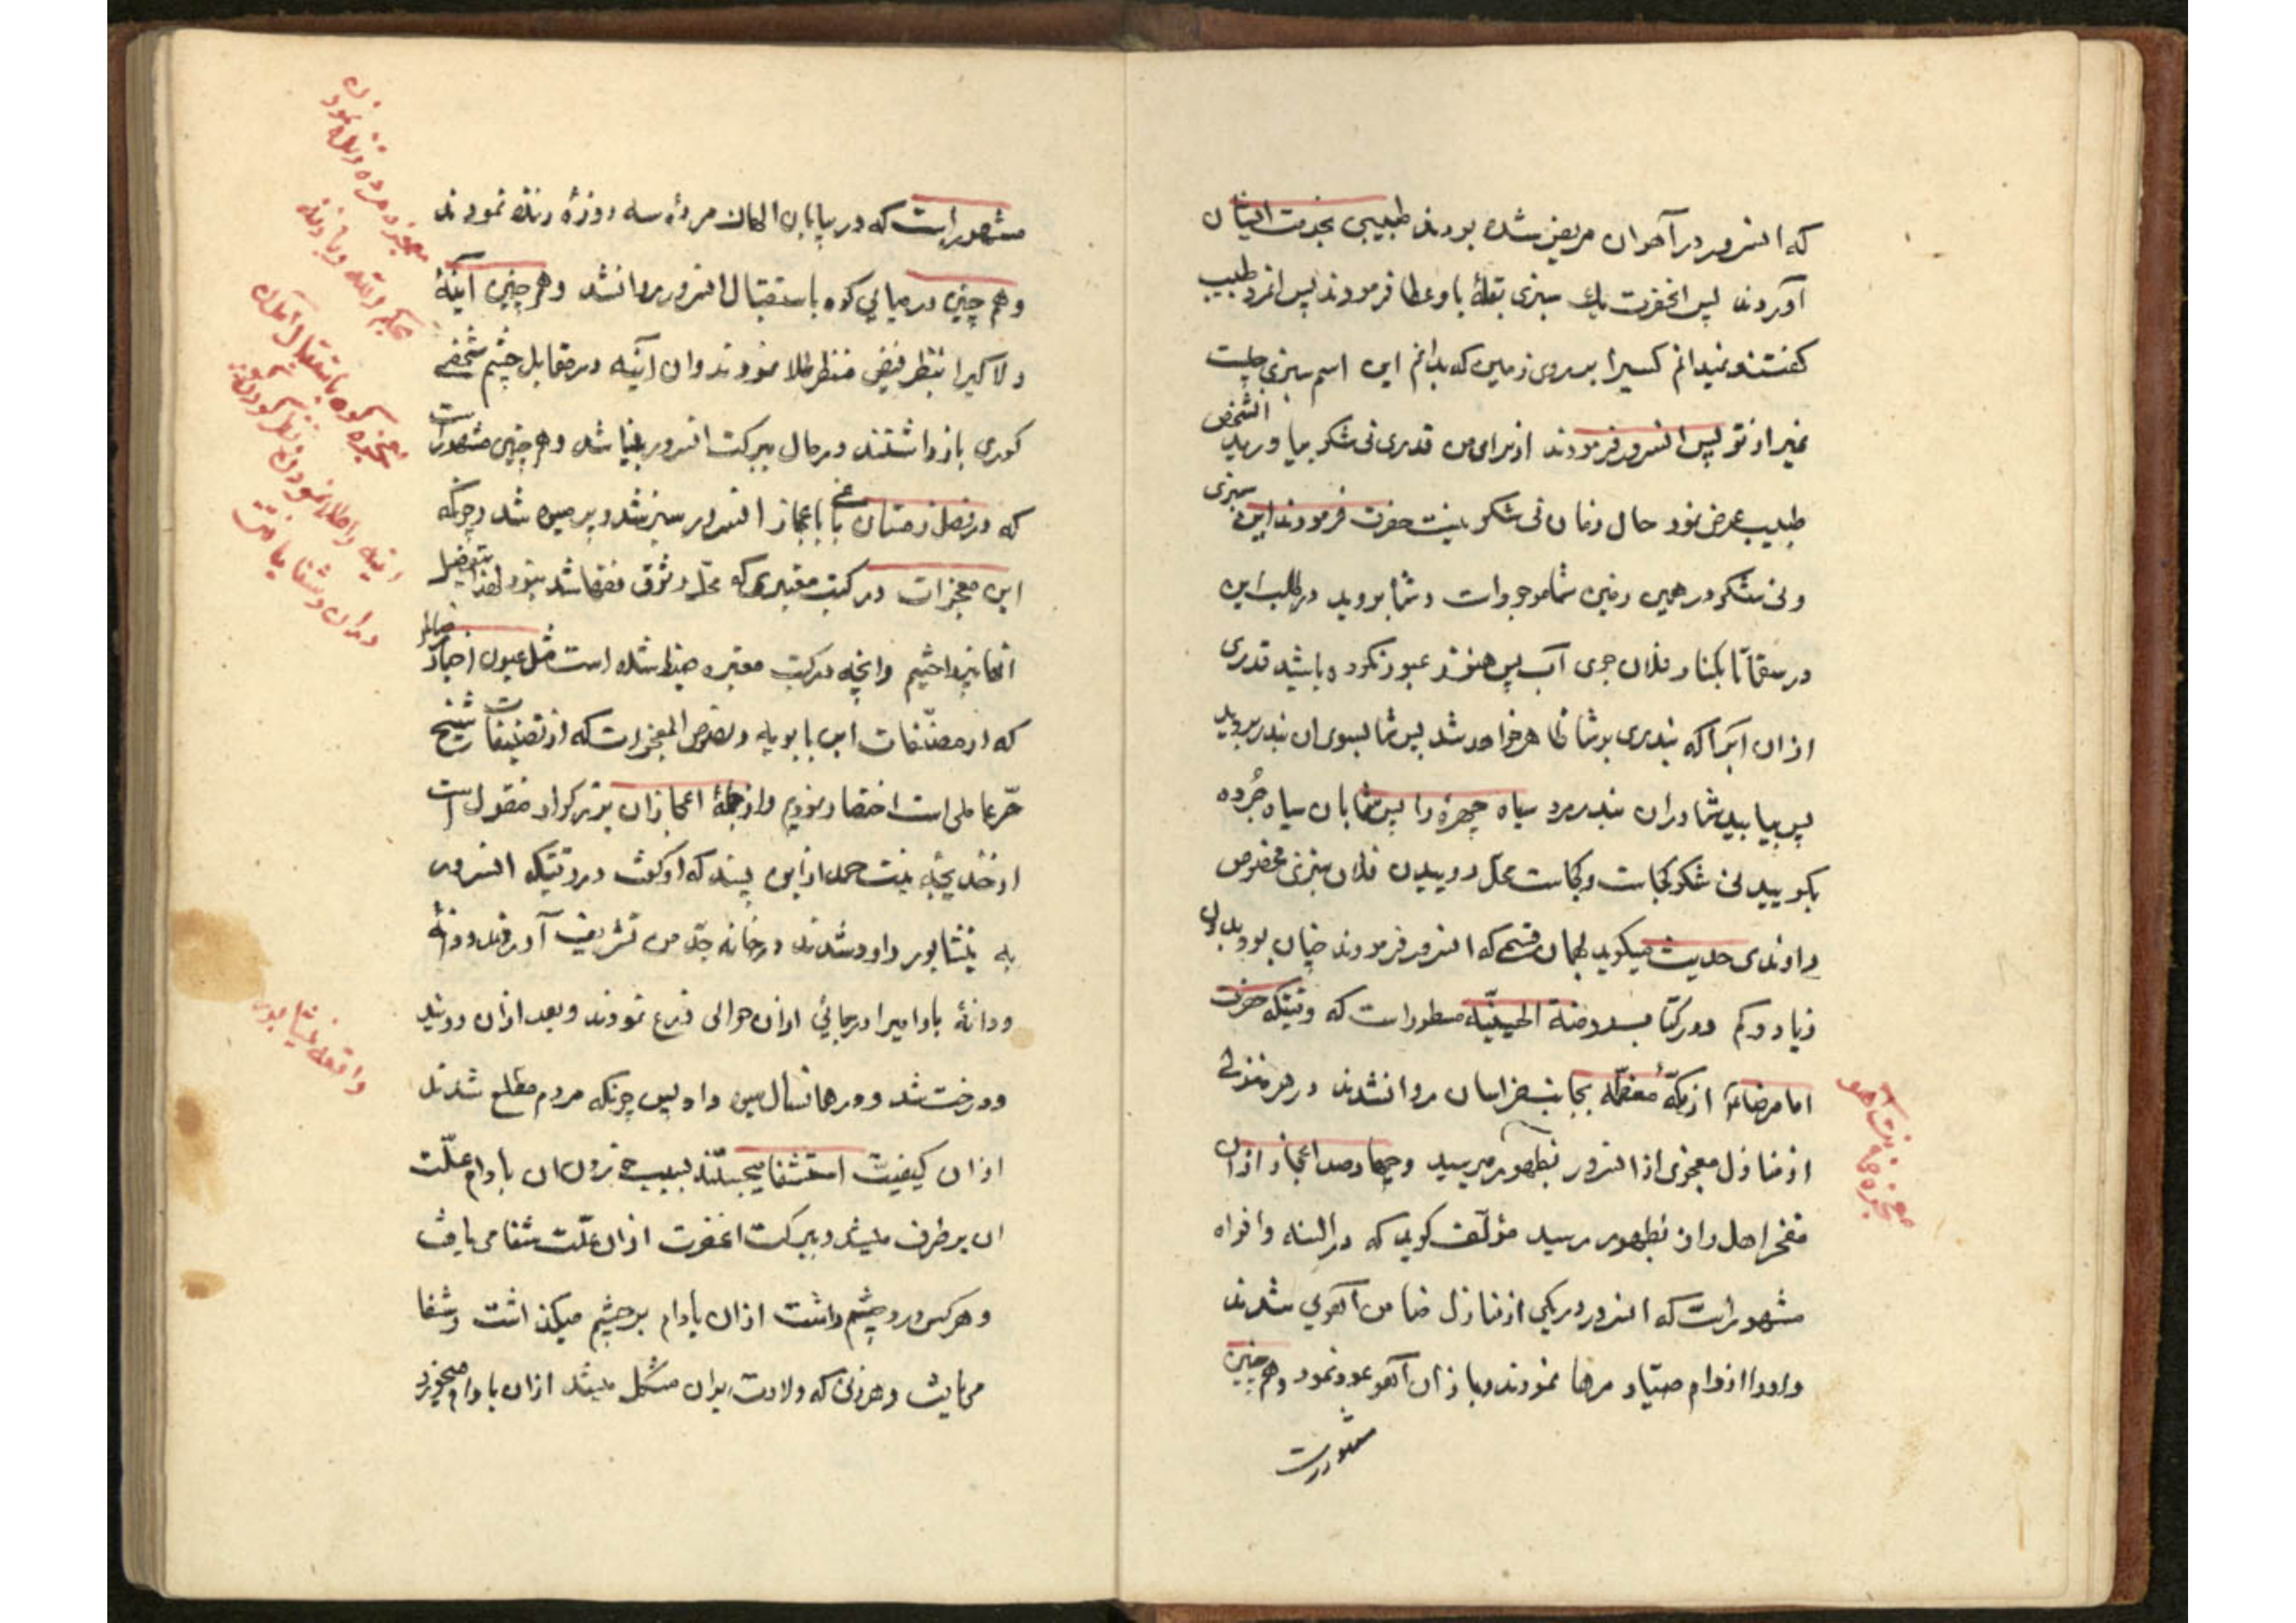 که انسرور در آهواز مریض شده بودند طبیبی بخدمت ایشان
آوردند پس انحضرت یک سبزی بقلهٔ باو عطا فرمودند پس انمرد طبیب
کفت نمیدانم کسیرا بر روی زمین که بداند این اسم سبزی چیست
بغیر از تو پس انسرور فرمودند از برای من قدری نی شکر بیاورید الشخص
طبیب عرض نمود حال زمان نی شکر نیست حضرت فرمودند این سبزی
و نی شکر در همین زمین شما موجود است و شما بروید در طلب این
در بکنار فلان جوی آب پس هنوز عبور نکرده باشید قدری
از ان آبرا که بندری بر شما ظاهر خواهد شد پس شما بسوی ان بندر بروید
پس بیابید شما در ان بندر مرد سیاه چهرهٔ را پس شما بان سیاه چرده
بکویید نی شکر کجاست و کجاست محل روییدن فلان سبزی مخصوص
راوندی حدیث میکوید بهمان قسم که انسرور فرمودند چنان بود بدون
زیاد و کم و در کتاب روضة الحسینیّه مسطور است که وقتیکه حضرت
امام رضا از مکّهٔ معظّمه بجانب خراسان روانشدند در هر منزلی
از منازل معجزی از انسرور بظهور میرسید و چهارصد اعجاز از ان
مفخر اهل راز بظهور رسید مؤلّف کوید که در السنه و افواه
مشهور است که انسرور در یکی از منازل ضامن آهوی شدند
و او را از دام صیّاد رها نمودند و باز ان آهو عود نمود و هم چنین
مشهور است
معجزه ضمانت آهو
مشهور است که در بیابان الهاک مردهٔ سه روزهٔ زنده نمودند
و هم چنین در میامی کوه باستقبال انسرور روانشد و هم چنین آینهٔ
و لاکیرا بنظر فیض منظر طلا نمودند و ان آینه در مقابل چشم شخصے
کوری بازداشتند در حال ببرکت انسرور بینا شد و هم چنین مشهور است
که در فصل زمستان باغی باعجاز انسرور سبز شد و پر میوه شد و چونکه
این معجزات در کتب معتبری که محلّ وثوق فقها شد نبود لهذا بتفصیل
انها نپرداختیم و انچه در کتب معتبره ضبط شده است مثل عیون اخبار رضا
که از مصنّفات ابن بابویه و نصوص المعجزات که از تصنیفات شیخ
حرّ عاملی است اختصار نمودیم و از جملهٔ اعجاز ان بزرکوار منقول است
از خدیجه بنت حمدان ابن پسنده که او کفت در وقتیکه انسرور
به نیشابور وارد شدند در خانه جدّ من تشریف آوردند و دانهٔ
و دانهٔ بادامیرا در جائی از ان حوالی زرع نمودند و بعد از ان رویید
و درخت شد و در همانسال میوه داد پس چونکه مردم مطلع شدند
از ان کیفیت استشفا میجستند بسبب خوردن ان بادام علّت
ان برطرف میشد و ببرکت انحضرت از ان علّت شفا می یافت
و هر کس درد چشم داشت از ان بادام بر چشم میکذاشت و شفا
می یافت و هر زنی که ولادت بر ان مشکل میشد از ان بادام میخورد
معجزه مرده زنده نمودن
معجزه کوه باستقبال آمدن
واقعه نیشابور